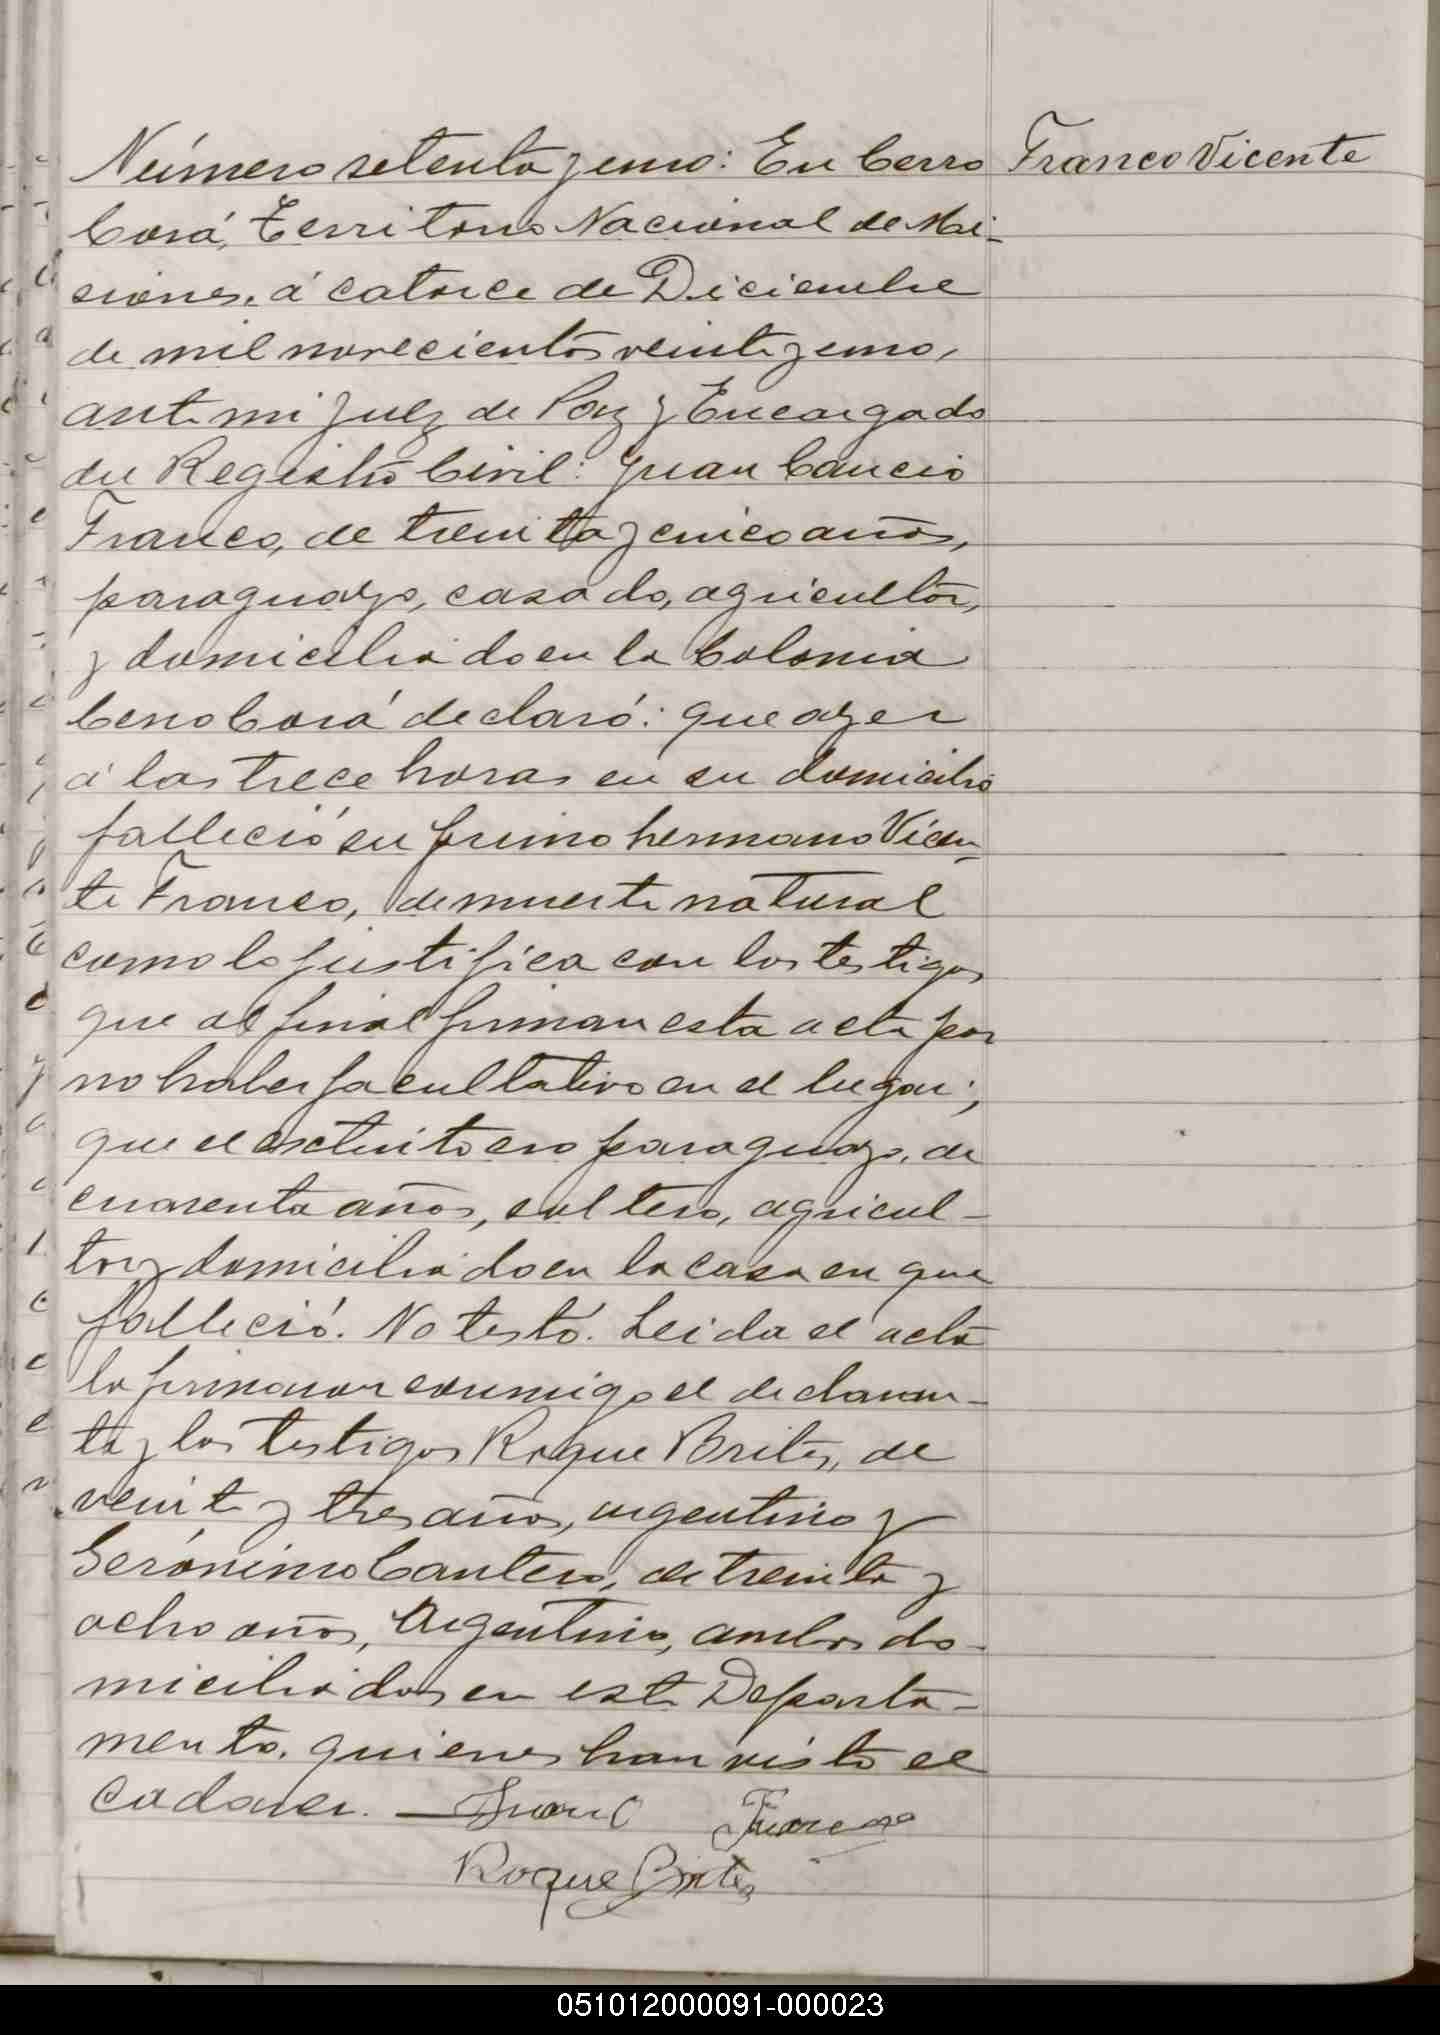 Número setenta y uno: En Cerro
Corá, Territorio Nacional de Mi-
siones, á catorce de Diciembre
de mil novecientos veinte y uno,
ante mi Juez de Paz y Encargado
del Registro Civil: Juan Cancio
Franco, de treinta y cinco años,
paraguayo, casado, agricultor,
y domiciliado en la Colonia
Cerro Corá declaró: que ayer
á las trece horas en su domicilio
falleció su primo hermano Vicen-
te Franco, de muerte natural
como lo justifica con los testigos
que al final firman esta acta por
no haber facultativo en el lugar;
que el extinto era paraguayo, de
cuarenta años, soltero, agricul-
tor y domiciliado en la casa en que
falleció. No testó. Leida el acta
la firmaron conmigo el declaran-
te y los testigos Roque Brites, de
veinte y tres años, argentino y
Gerónimo Cantero, de treinta y
ocho años, Argentino, ambos do-
miciliados en este Departa-
mento, quienes han visto el
cadaver. — Juan C Franco
Roque Brites
Franco Vicente
051012000091-000023